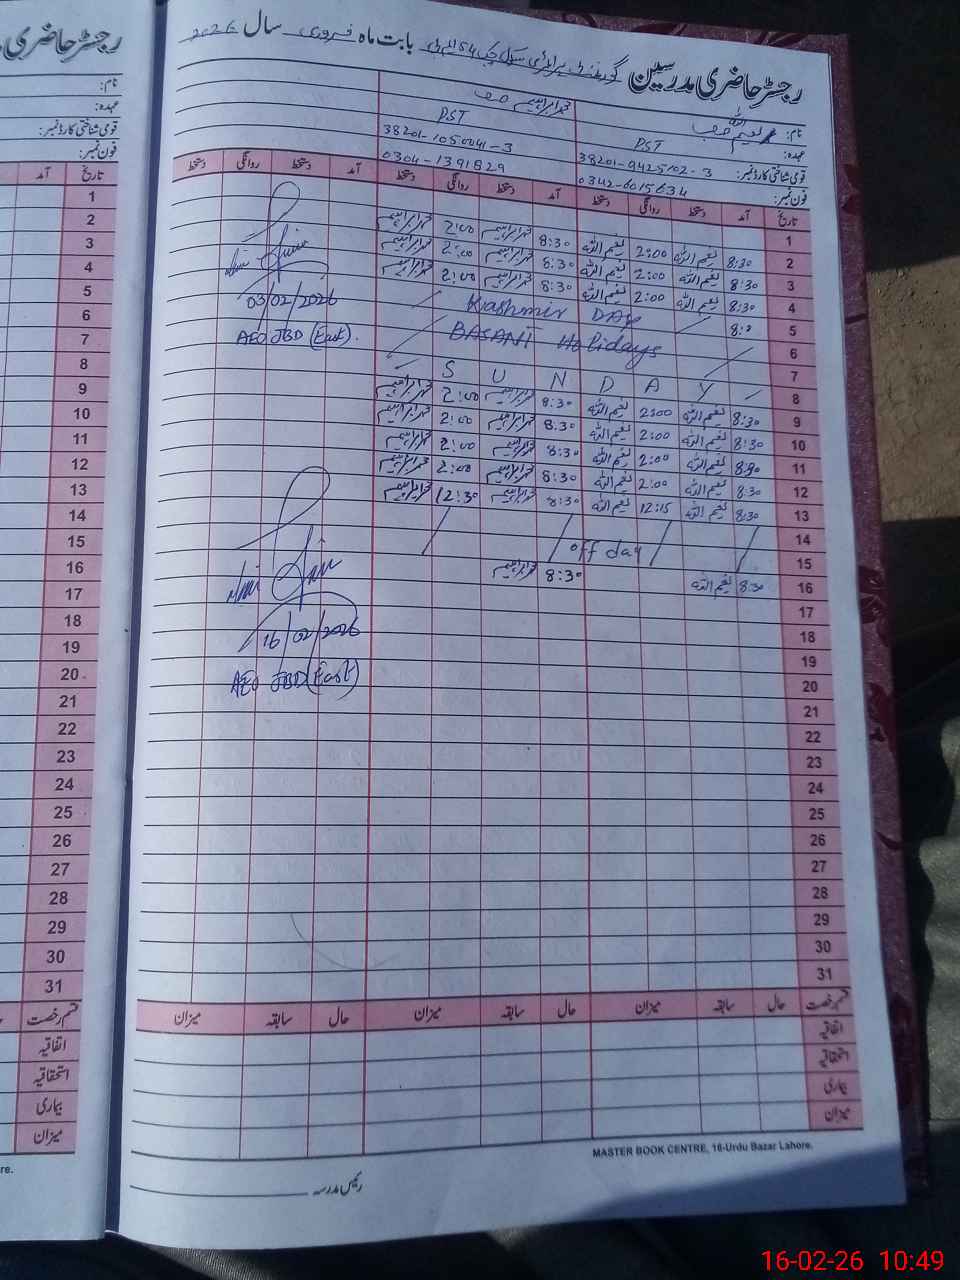 رجسٹر حاضری مدرسین گورنمنٹ پرائمری سکول چک 54 ایم بی بابت ماہ فروری سال 2026
نام: نعیم اللہ محمد ابراہیم
عہدہ: PST PST
قومی شناختی کارڈ نمبر: 38201-9425102-3 38201-1050041-3
فون نمبر: 0342-6015634 0304-1391829
تاریخ آمد دستخط روانگی دستخط آمد دستخط روانگی دستخط آمد دستخط روانگی دستخط
1
2 8:30 نعیم اللہ 2:00 نعیم اللہ 8:30 محمد ابراہیم 2:00 محمد ابراہیم
3 8:30 نعیم اللہ 2:00 نعیم اللہ 8:30 محمد ابراہیم 2:00 محمد ابراہیم
4 8:30 نعیم اللہ 2:00 نعیم اللہ 8:30 محمد ابراہیم 2:00 محمد ابراہیم
03/02/2026
AEO JBD (East).
5 Kashmir DAY
6 BASANT Holidays
7
8 S U N D A Y
9 8:30 نعیم اللہ 2:00 نعیم اللہ 8:30 محمد ابراہیم 2:00 محمد ابراہیم
10 8:30 نعیم اللہ 2:00 نعیم اللہ 8:30 محمد ابراہیم 2:00 محمد ابراہیم
11 8:30 نعیم اللہ 2:00 نعیم اللہ 8:30 محمد ابراہیم 2:00 محمد ابراہیم
12 8:30 نعیم اللہ 2:00 نعیم اللہ 8:30 محمد ابراہیم 2:00 محمد ابراہیم
13 8:30 نعیم اللہ 12:15 نعیم اللہ 8:30 محمد ابراہیم 12:30 محمد ابراہیم
14
15 off day
16 8:30 نعیم اللہ 8:30 محمد ابراہیم
16/02/2026
AEO JBD (East)
17
18
19
20
21
22
23
24
25
26
27
28
29
30
31
قسم رخصت حال سابقہ میزان حال سابقہ میزان حال سابقہ میزان
اتفاقیہ
استحقاقیہ
بیماری
میزان
MASTER BOOK CENTRE, 16-Urdu Bazar Lahore.
رئیس مدرسہ
رجسٹر حاضری
نام:
عہدہ:
قومی شناختی کارڈ نمبر:
فون نمبر:
تاریخ آمد
1
2
3
4
5
6
7
8
9
10
11
12
13
14
15
16
17
18
19
20
21
22
23
24
25
26
27
28
29
30
31
قسم رخصت
اتفاقیہ
استحقاقیہ
بیماری
میزان
re.
16-02-26 10:49